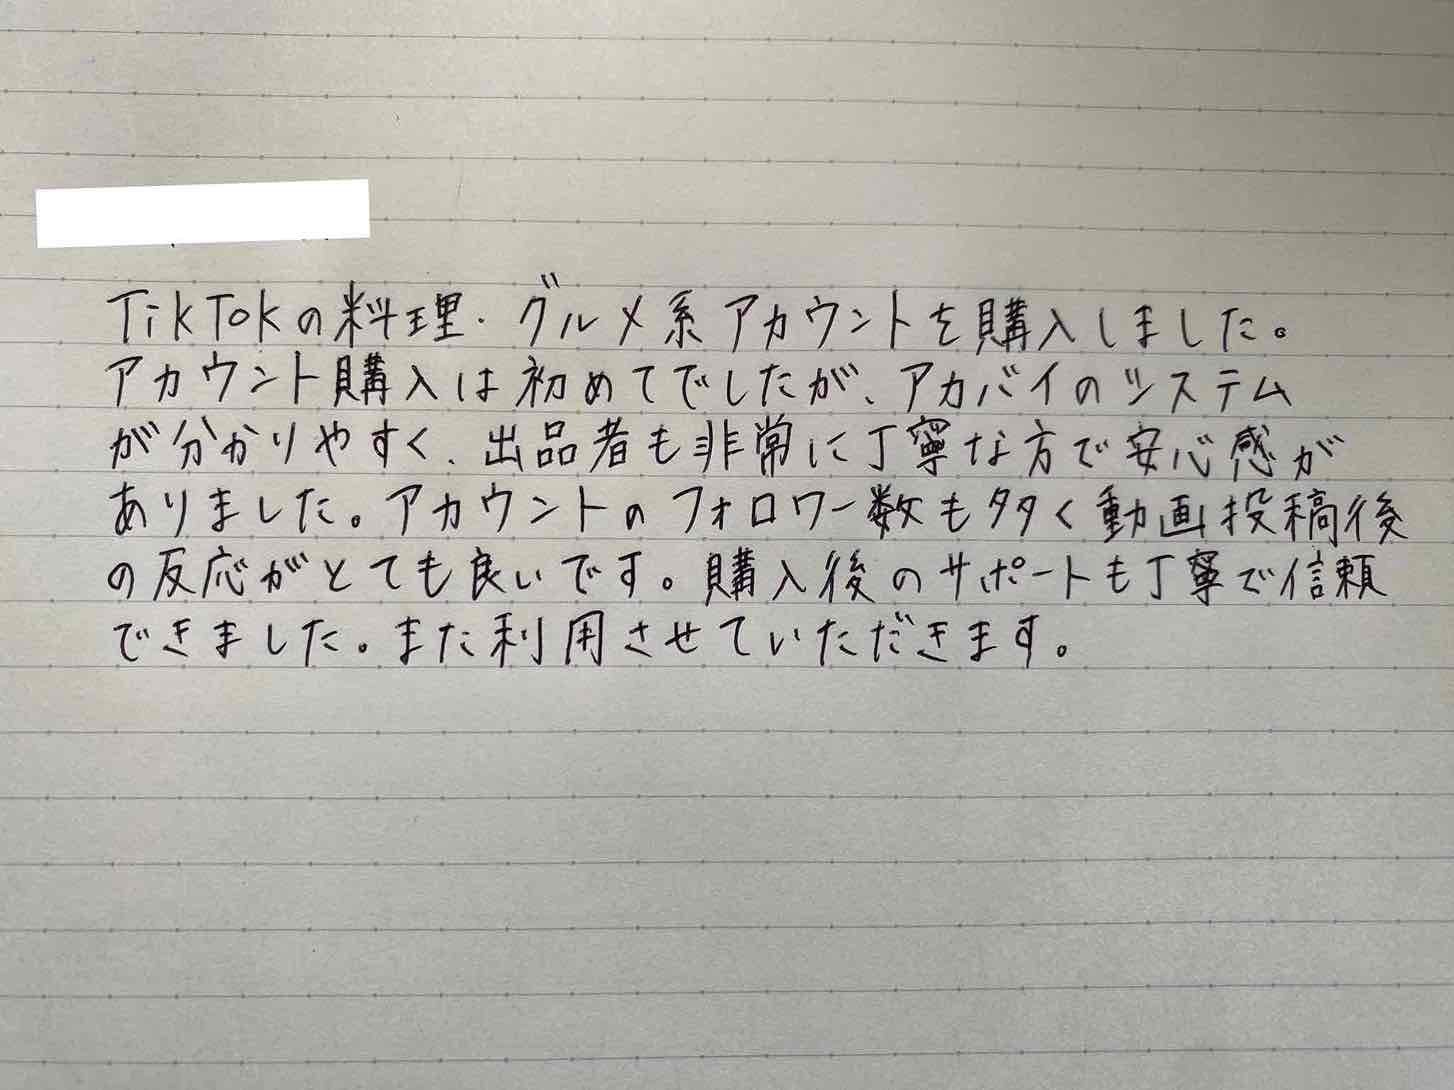 TikTokの料理・グルメ系アカウントを購入しました。
アカウント購入は初めてでしたが、アカバイのシステム
が分かりやすく、出品者も非常に丁寧な方で安心感が
ありました。アカウントのフォロワー数も多く動画投稿後
の反応がとても良いです。購入後のサポートも丁寧で信頼
できました。また利用させていただきます。